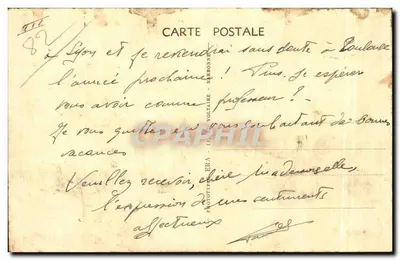 CARTE POSTALE
82
à Lyon et je reviendrai sans doute à Toulouse
l'année prochaine ! Puis-je espérer
vous avoir comme professeur ? -
Je vous quitte en vous souhaitant de bonnes
vacances
Veuillez recevoir, chère Mademoiselle,
l'expression de mes sentiments
affectueux
CPAPHIL